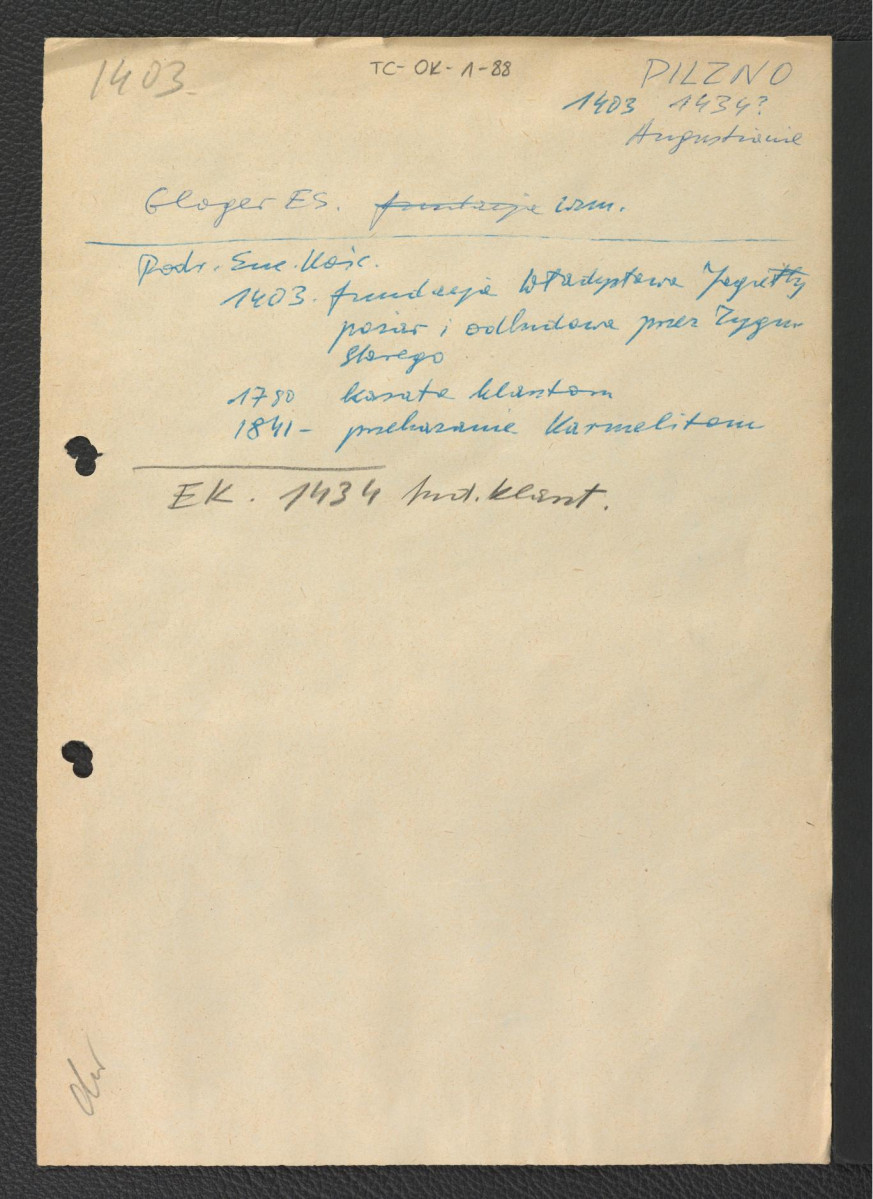 1403.
TC-OK-1-88
PILZNO
1403 1434?
Augustianie
Gloger ES. fundacja wzm.
Podr. Enc. Kośc.
1403. fundacja Władysława Jagiełły
pożar i odbudowa przez Zygm.
Starego
1780 kasata klasztoru
1841 - przekazanie Karmelitom
EK. 1434 fund. klaszt.